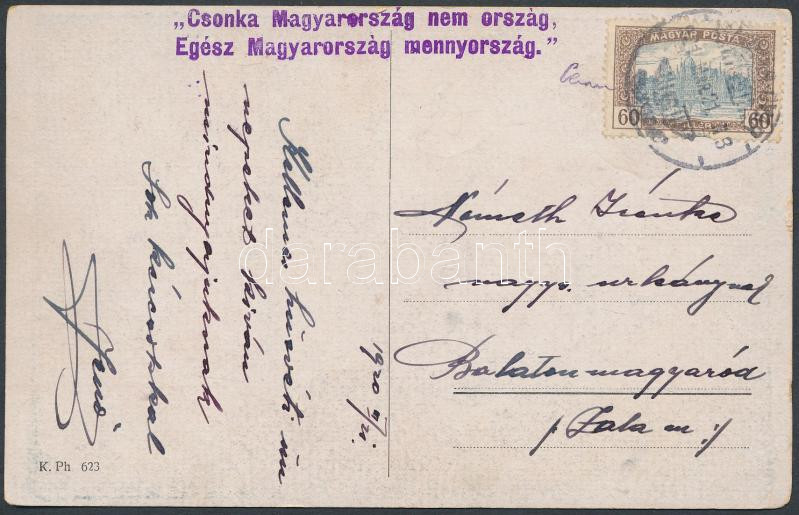 „Csonka Magyarország nem ország,
Egész Magyarország mennyország.”
MAGYAR POSTA
60 60
Kellemes húsvéti ün
nepeket kíván
mindnyájuknak
Sok kézcsókkal
Jenő
1920
Németh Irénke
nagys. urhölgynek
Balatonmagyaród
/ Zala m. /
K. Ph 623
darabanth